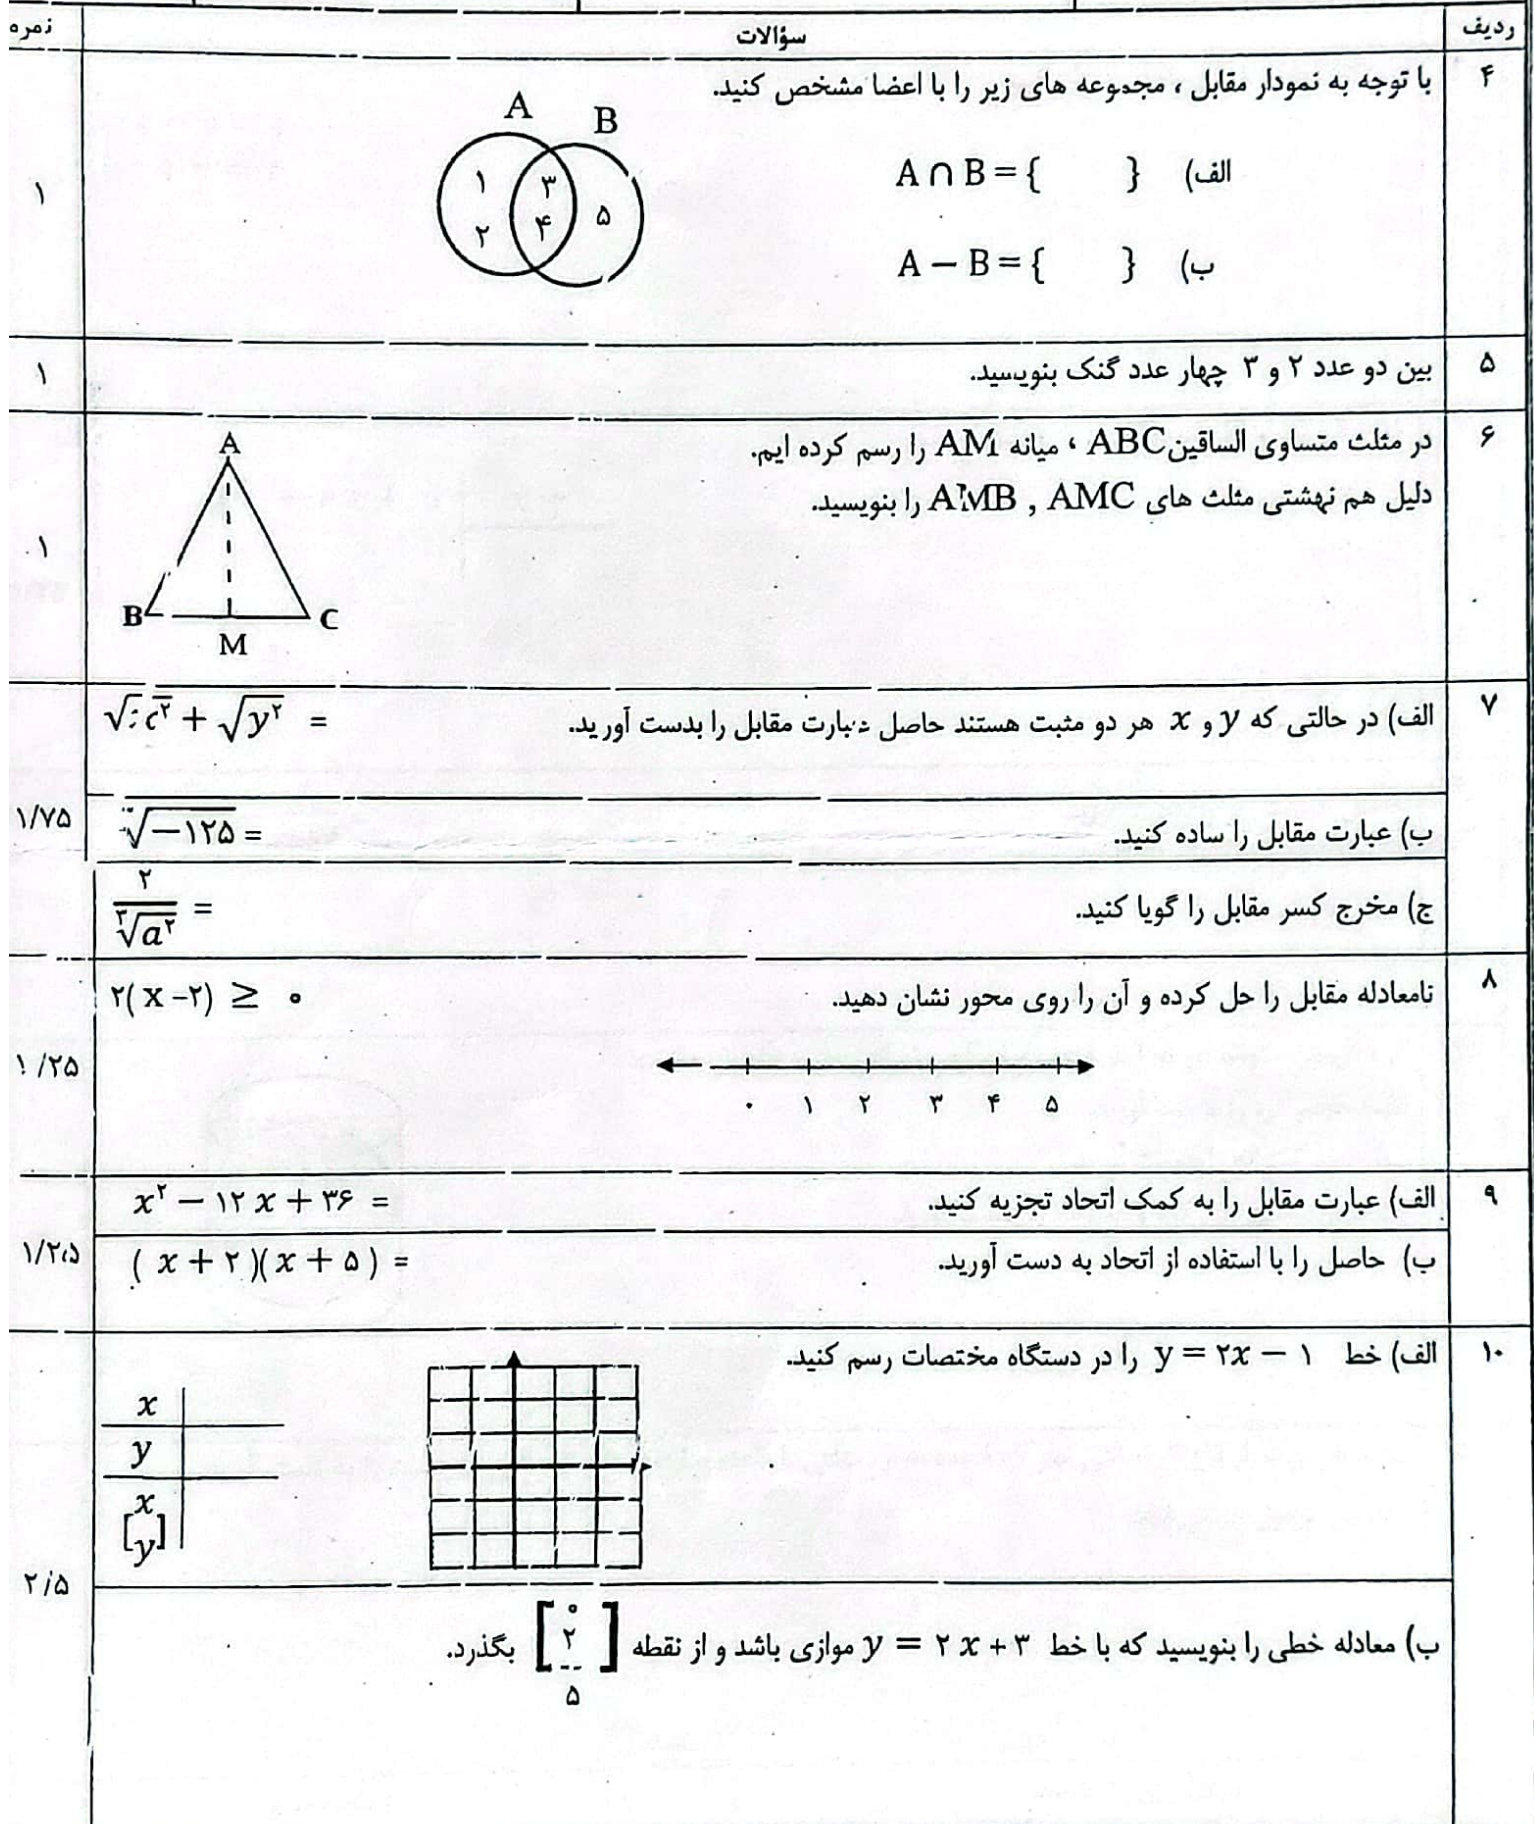 ردیف سؤالات نمره
۴ با توجه به نمودار مقابل ، مجموعه های زیر را با اعضا مشخص کنید.
A B
الف) A ∩ B = { }
۱ ۳
۲ ۴ ۵
۱
ب) A − B = { }
۵ بین دو عدد ۲ و ۳ چهار عدد گنگ بنویسید. ۱
۶ در مثلث متساوی الساقین ABC ، میانه AM را رسم کرده ایم.
دلیل هم نهشتی مثلث های AMB , AMC را بنویسید.
۱
A
B C
M
۷ الف) در حالتی که y و x هر دو مثبت هستند حاصل عبارت مقابل را بدست آورید. √x۲ + √y۲ =
۱/۷۵
ب) عبارت مقابل را ساده کنید. ∛−۱۲۵ =
ج) مخرج کسر مقابل را گویا کنید. ۲/∛a۲ =
۸ نامعادله مقابل را حل کرده و آن را روی محور نشان دهید. ۲( x −۲) ≥ ۰
۱/۲۵
۰ ۱ ۲ ۳ ۴ ۵
۹ الف) عبارت مقابل را به کمک اتحاد تجزیه کنید. x۲ − ۱۲ x + ۳۶ =
۱/۲۵
ب) حاصل را با استفاده از اتحاد به دست آورید. ( x + ۲ )( x + ۵ ) =
۱۰ الف) خط y = ۲x − ۱ را در دستگاه مختصات رسم کنید.
x
y
[x y]
۲/۵
ب) معادله خطی را بنویسید که با خط y = ۲ x + ۳ موازی باشد و از نقطه [۰ ۲ -- ۵] بگذرد.